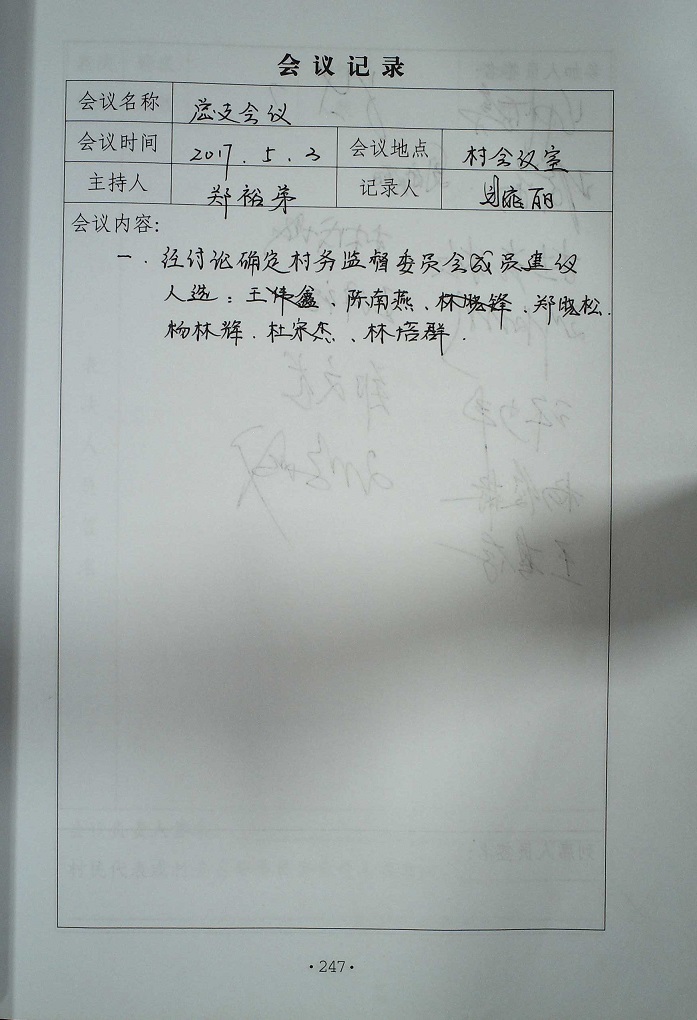 会议记录
会议名称 总支会议
会议时间 2017.5.3 会议地点 村会议室
主持人 郑裕荣 记录人 丽
会议内容:
一.经讨论确定村务监督委员会成员建议
人选:王伟鑫、陈南燕、林晓锋、郑晓松.
杨林辉.杜宗杰、林培群.
·247·